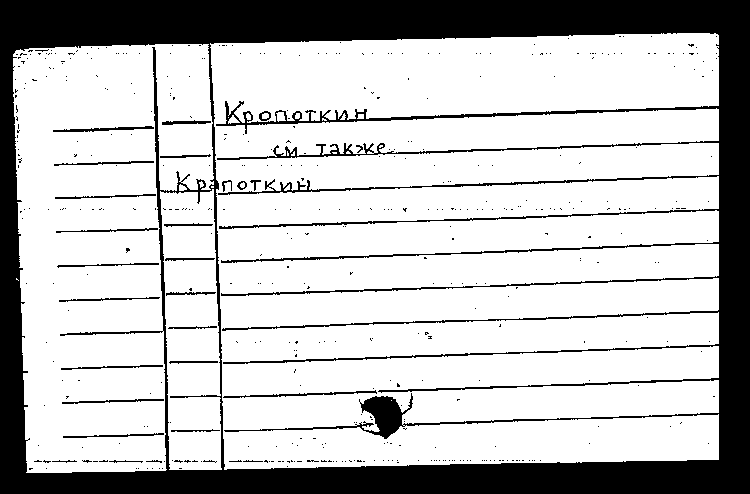 Кропоткин
см также
Крапоткин